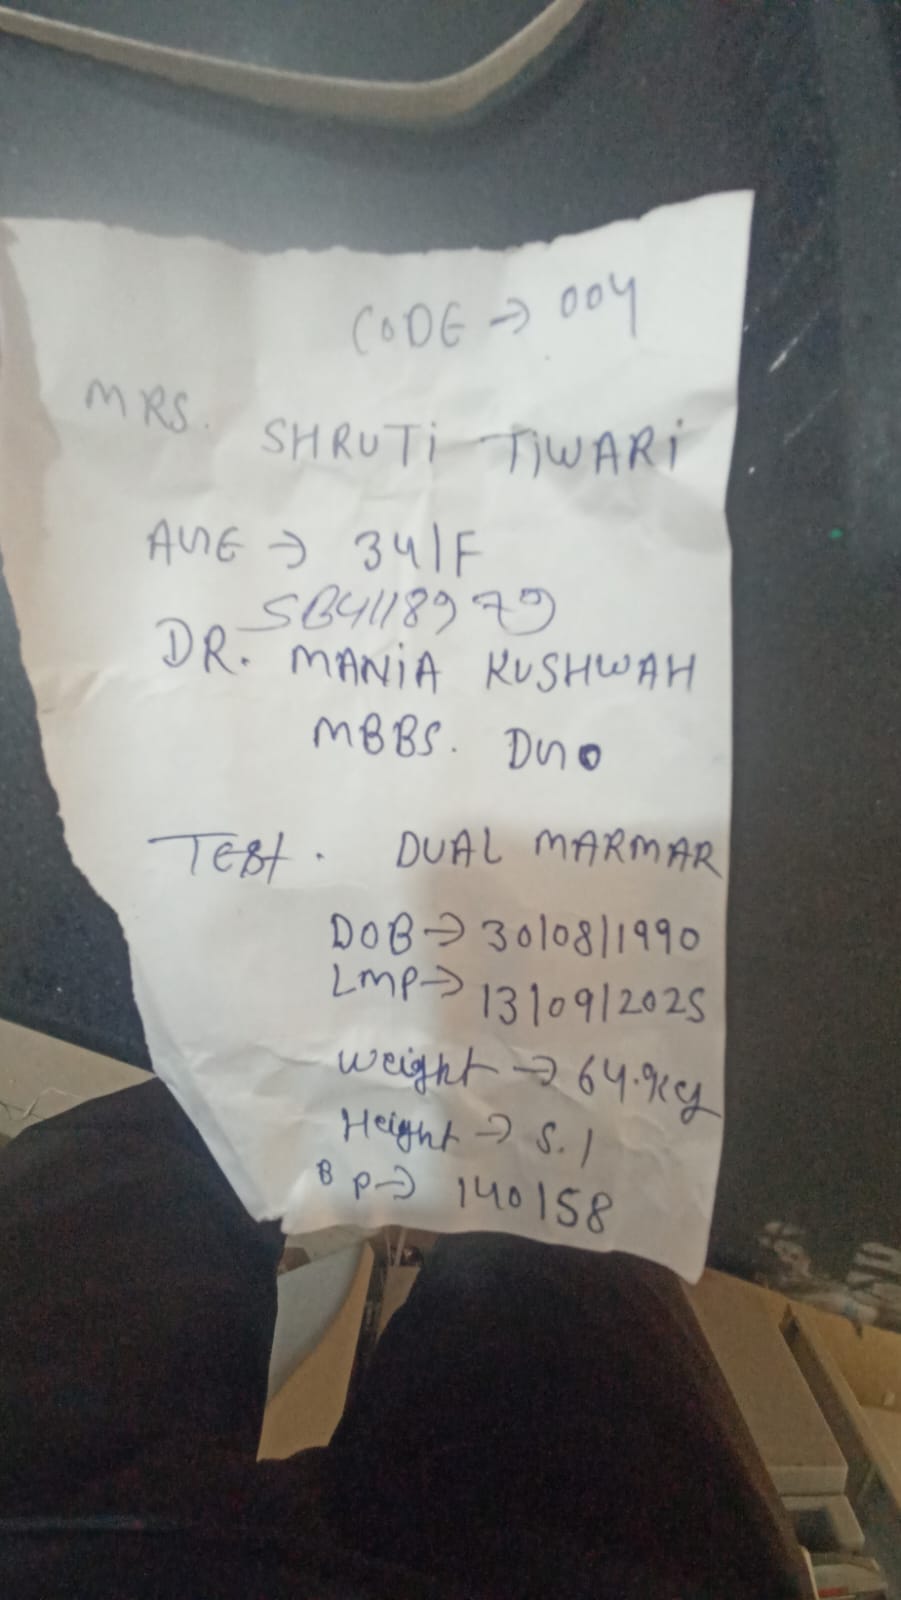 CODE → 004
MRS. SHRUTi TiWARi
AGE → 34/F
SB4118979
DR. MANiA KUSHWAH
MBBS. DGO
TEST. DUAL MARMAR
DOB → 30/08/1990
LMP → 13/09/2025
Weight → 64.9kg
Height → 5.1
BP → 140/58